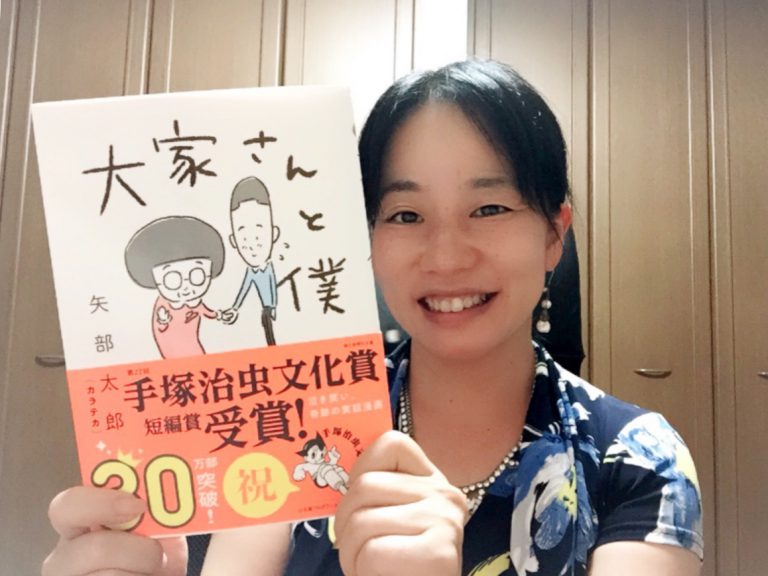 大家さん
と
僕
矢部太郎
(カラテカ)
第22回
手塚治虫文化賞
短編賞
受賞!
泣き笑い、
奇跡の実話漫画
30
万部
突破!
祝
手塚治虫